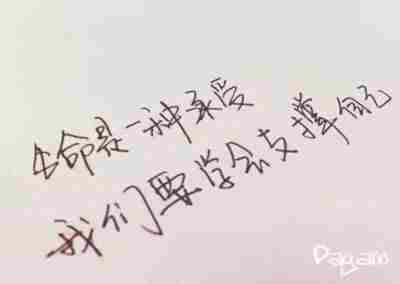 生命是一种承受
我们要学会支撑自己
Dayain